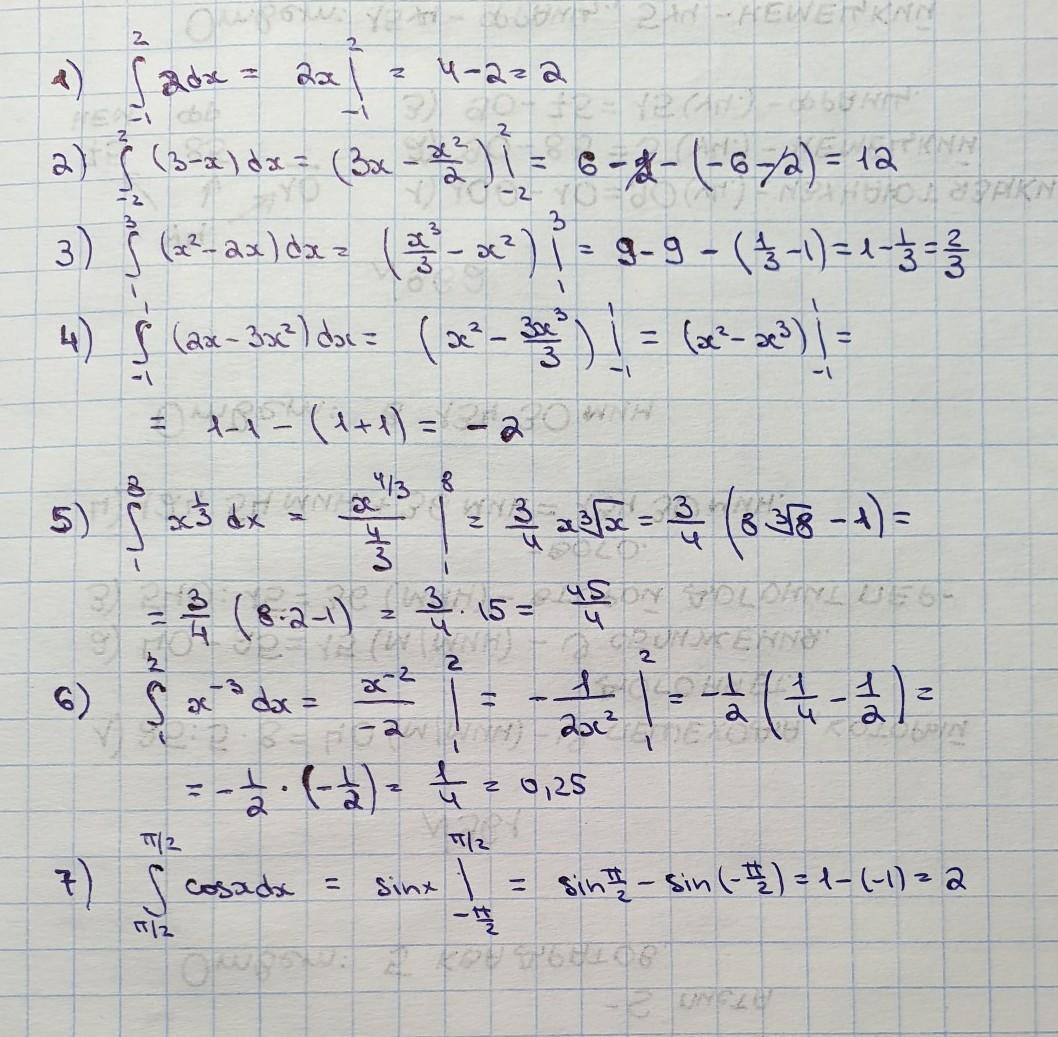 1) ∫₋₁² 2dx = 2x |₋₁² = 4-2=2
2) ∫₋₂² (3-x) dx = (3x - x²/2) |₋₂² = 6-2-(-6-2)=12
3) ∫₁³ (x²-2x) dx = (x³/3 - x²) |₁³ = 9-9-(1/3-1)=1-1/3=2/3
4) ∫₋₁¹ (2x-3x²) dx = (x² - 3x³/3) |₋₁¹ = (x²-x³) |₋₁¹ =
= 1-1-(1+1) = -2
5) ∫₁⁸ x^(1/3) dx = x^(4/3)/(4/3) |₁⁸ = 3/4 x∛x = 3/4 (8∛8 - 1) =
= 3/4 (8·2-1) = 3/4 · 15 = 45/4
6) ∫₁² x⁻³ dx = x⁻²/-2 |₁² = - 1/2x² |₁² = -1/2 (1/4 - 1/2) =
= -1/2 · (-1/2) = 1/4 = 0,25
7) ∫_(π/2)^(π/2) cosxdx = sinx |_(-π/2)^(π/2) = sin π/2 - sin(-π/2) = 1-(-1) = 2